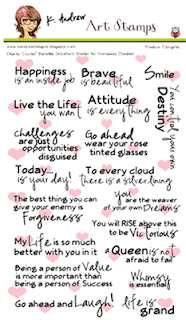 K. Andrew
Art Stamps
Positive Thoughts
Happiness
is an inside job
Brave
is beautiful
Smile
Live the Life
you want
Attitude
is everything
Destiny
You control your own
challenges
are just
opportunities
disguised
Go ahead
wear your rose
tinted glasses
Today...
is your day!
To every cloud
there is a silver lining
The best thing you can
give your enemy is
Forgiveness
You are the weaver
of your own Dreams
You will RISE above this
to be Victorious
My Life is so much
better with you in it
a Queen is not
afraid to fail
Being a person of Value
is more important than
being a person of Success
Whimsy
is essential
Go ahead and Laugh!
life is
grand